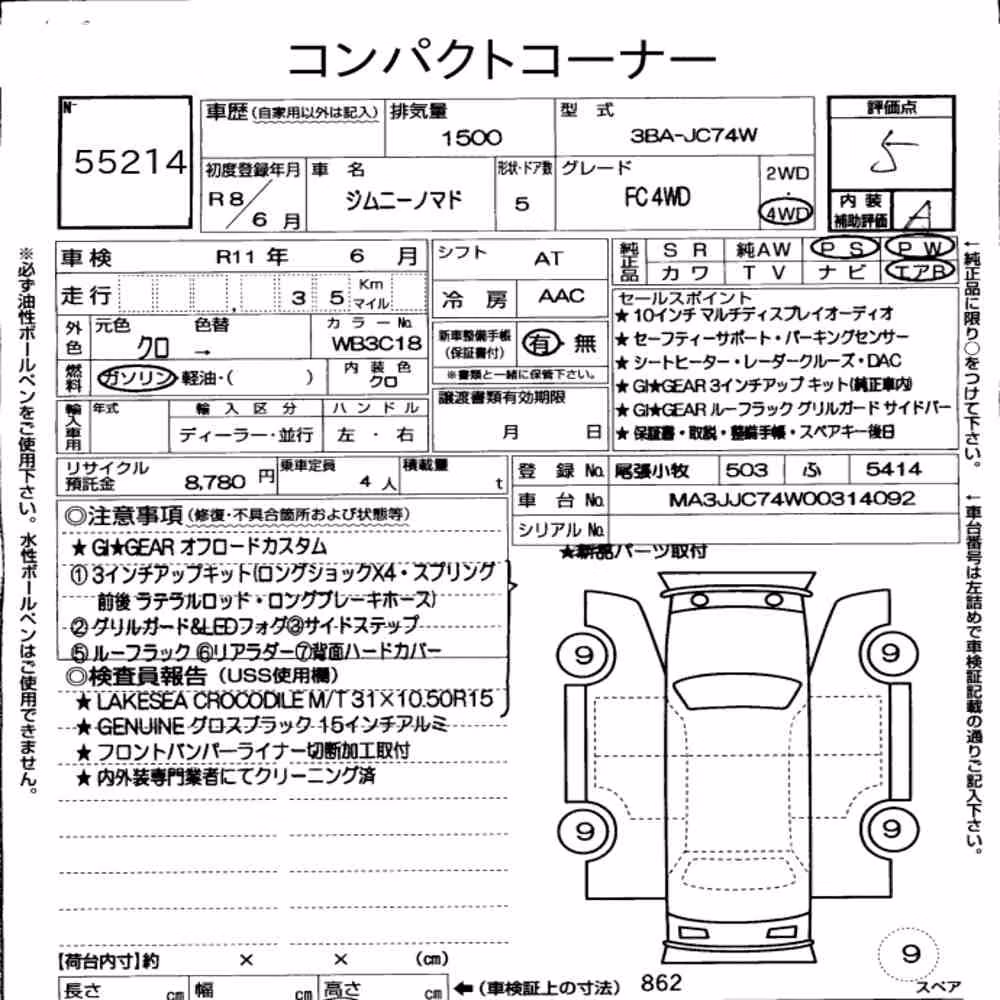 コンパクトコーナー
N-
55214
車歴(自家用以外は記入) 排気量 1500 型式 3BA-JC74W
評価点 5
初度登録年月 R8/6月 車名 ジムニーノマド 形状・ドア数 5 グレード FC 4WD 2WD・4WD
内装補助評価 A
車検 R11年 6月
走行 35 Km マイル
外色 元色 クロ → 色替 カラーNo. WB3C18
燃料 ガソリン・軽油・( ) 内装色 クロ
輸入車用 年式 輸入区分 ディーラー・並行 ハンドル 左・右
シフト AT
冷房 AAC
新車整備手帳(保証書付) 有・無
※書類と一緒に保管下さい。
譲渡書類有効期限
月 日
純正品 SR 純AW PS PW
カワ TV ナビ エアB
セールスポイント
★10インチ マルチディスプレイオーディオ
★セーフティーサポート・パーキングセンサー
★シートヒーター・レーダークルーズ・DAC
★GI★GEAR 3インチアップ キット(純正車内)
★GI★GEAR ルーフラック グリルガード サイドバー
★保証書・取説・整備手帳・スペアキー後日
リサイクル預託金 8,780円 乗車定員 4人 積載量 t
登録No. 尾張小牧 503 ふ 5414
車台No. MA3JJC74W00314092
シリアルNo.
★新品パーツ取付
◎注意事項(修復・不具合箇所および状態等)
★GI★GEAR オフロードカスタム
①3インチアップキット(ロングショックX4・スプリング
前後 ラテラルロッド・ロングブレーキホース)
②グリルガード&LEDフォグ③サイドステップ
⑤ルーフラック ⑥リアラダー⑦背面ハードカバー
◎検査員報告(USS使用欄)
★LAKESEA CROCODILE M/T 31×10.50R15
★GENUINE グロスブラック 15インチアルミ
★フロントバンパーライナー切断加工取付
★内外装専門業者にてクリーニング済
9 9
9 9
9
スペア
【荷台内寸】約 × × (cm)
長さ cm 幅 cm 高さ cm ←(車検証上の寸法) 862
※必ず油性ボールペンをご使用下さい。水性ボールペンはご使用できません。
←純正品に限り○をつけて下さい。
←車台番号は左詰めで車検証記載の通りご記入下さい。